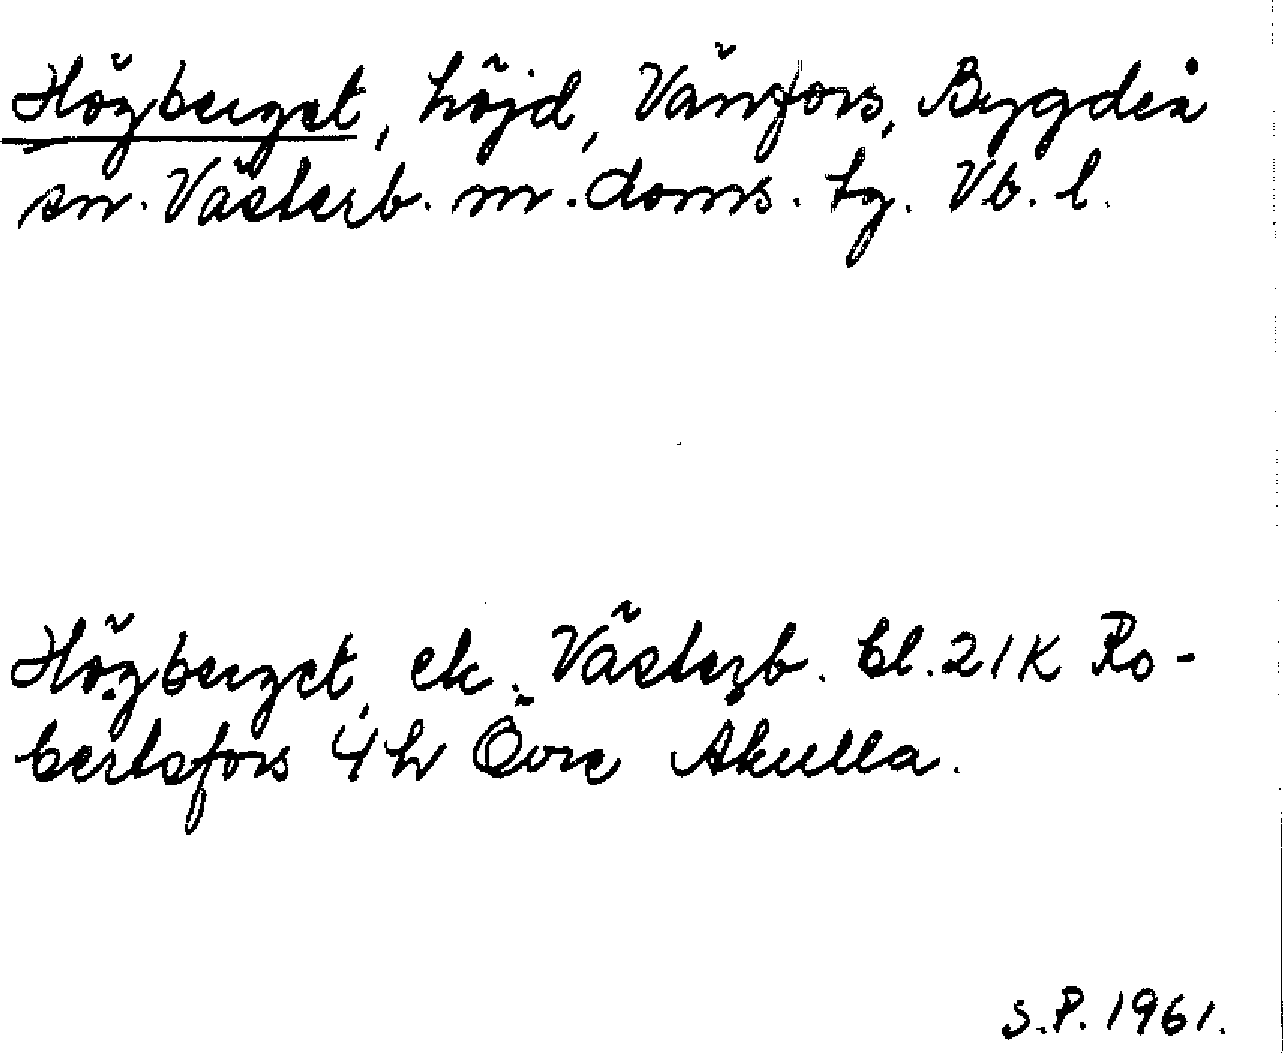 Högberget, höjd, Vänfors, Bygdeå
sn. Västerb. m. doms. tg. Vb. l.
Högberget, ek. Västerb. bl. 21K Ro-
bertsfors 4h Övre Åkulla.
S.P. 1961.